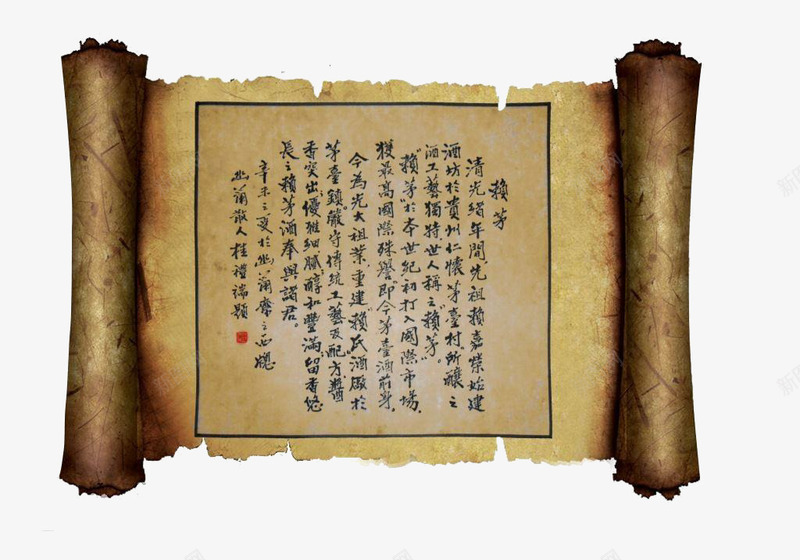 賴茅
清光緒年間先祖賴嘉榮始建
酒坊於貴州仁懷茅臺村所釀之
酒工藝獨特世人稱之"賴茅"。
"賴茅"於本世紀初打入國際市場,
獲最高國際殊譽即今茅臺酒前身,
今為光大祖業,重建"賴氏酒廠"於
茅臺鎮。嚴守傳統工藝及配方,醬
香突出,優雅細膩,醇和豐滿,留香悠
長之賴茅酒奉與諸君。
辛未之夏於幽蘭齋之西牕
幽蘭散人桂禮端題